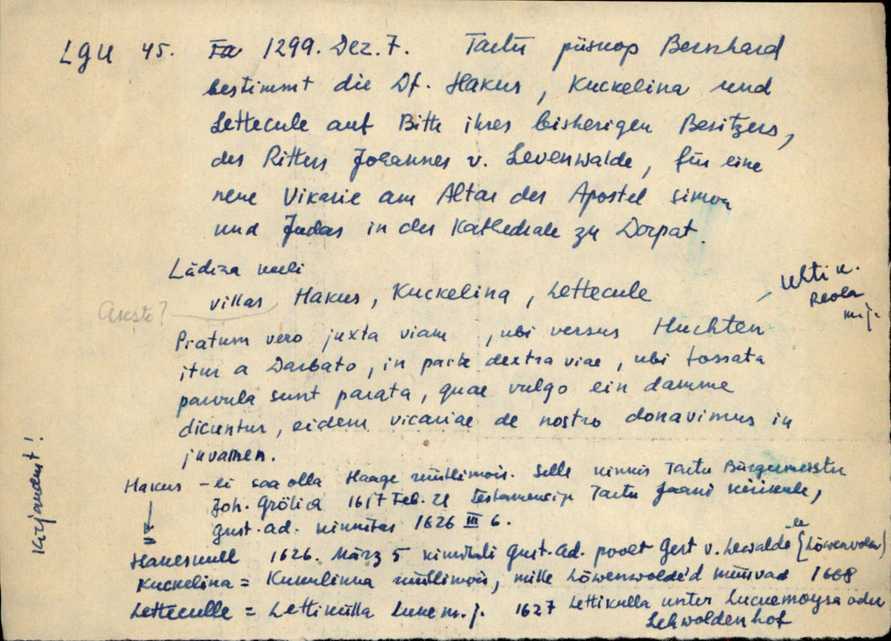 LGU 45. Fa 1299. Dez. 7. Tartu piiskop Bernhard
bestimmt die Df. Hakus, Kuckelina und
Lettecule auf Bitte ihres bisherigen Besitzers,
des Ritters Johannes v. Levenwalde, für eine
neue Vikarie am Altar der Apostel Simon
und Judas in der Kathedrale zu Dorpat.
Lädiza
villas Hakus, Kuckelina, Lettecule
Uhti u.
Reola
m.j.
Akste?
Pratum vero juxta viam, ubi versus Huchten
itur a Darbato, in parte dextra viae, ubi fossata
parvula sunt parata, quae vulgo ein damme
dicuntur, eidem vicariae de nostro donavimus in
juvamen.
Hakus - ei saa olla Haage rüütlimois. Selle kinnis Tartu Bürgermeister
Joh. Grölich 1617 Feb. 21 Tartu Jaani kirikule,
Gust. Ad. kinnitas 1626 III 6.
Hauesküll 1626. März 5 Gust. Ad. poolt Gert v. Lewalde-le (Löwenwolde)
Kuckelina = Kuuslinna rüütlimois, mille Löwenwolde'd müüvad 1668
Letteculle = Lettikülla Luune m.j. 1627 Lettikulla unter Lucuemoysa oder
Lehwoldenhof
Kirjandust!